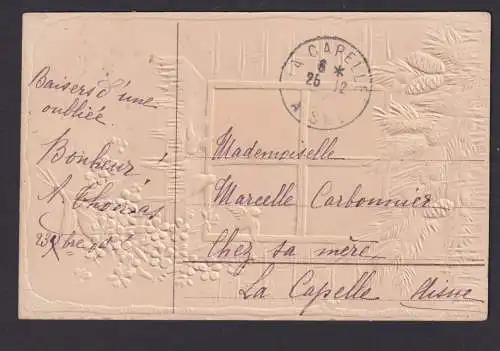 Baisers d'une
oubliée.
Bonheur!
A. Thomas
LA CAPELLE
6 *
25 12
AISNE
Mademoiselle
Marcelle Carbonnier
Chez sa mère
La Capelle Aisne